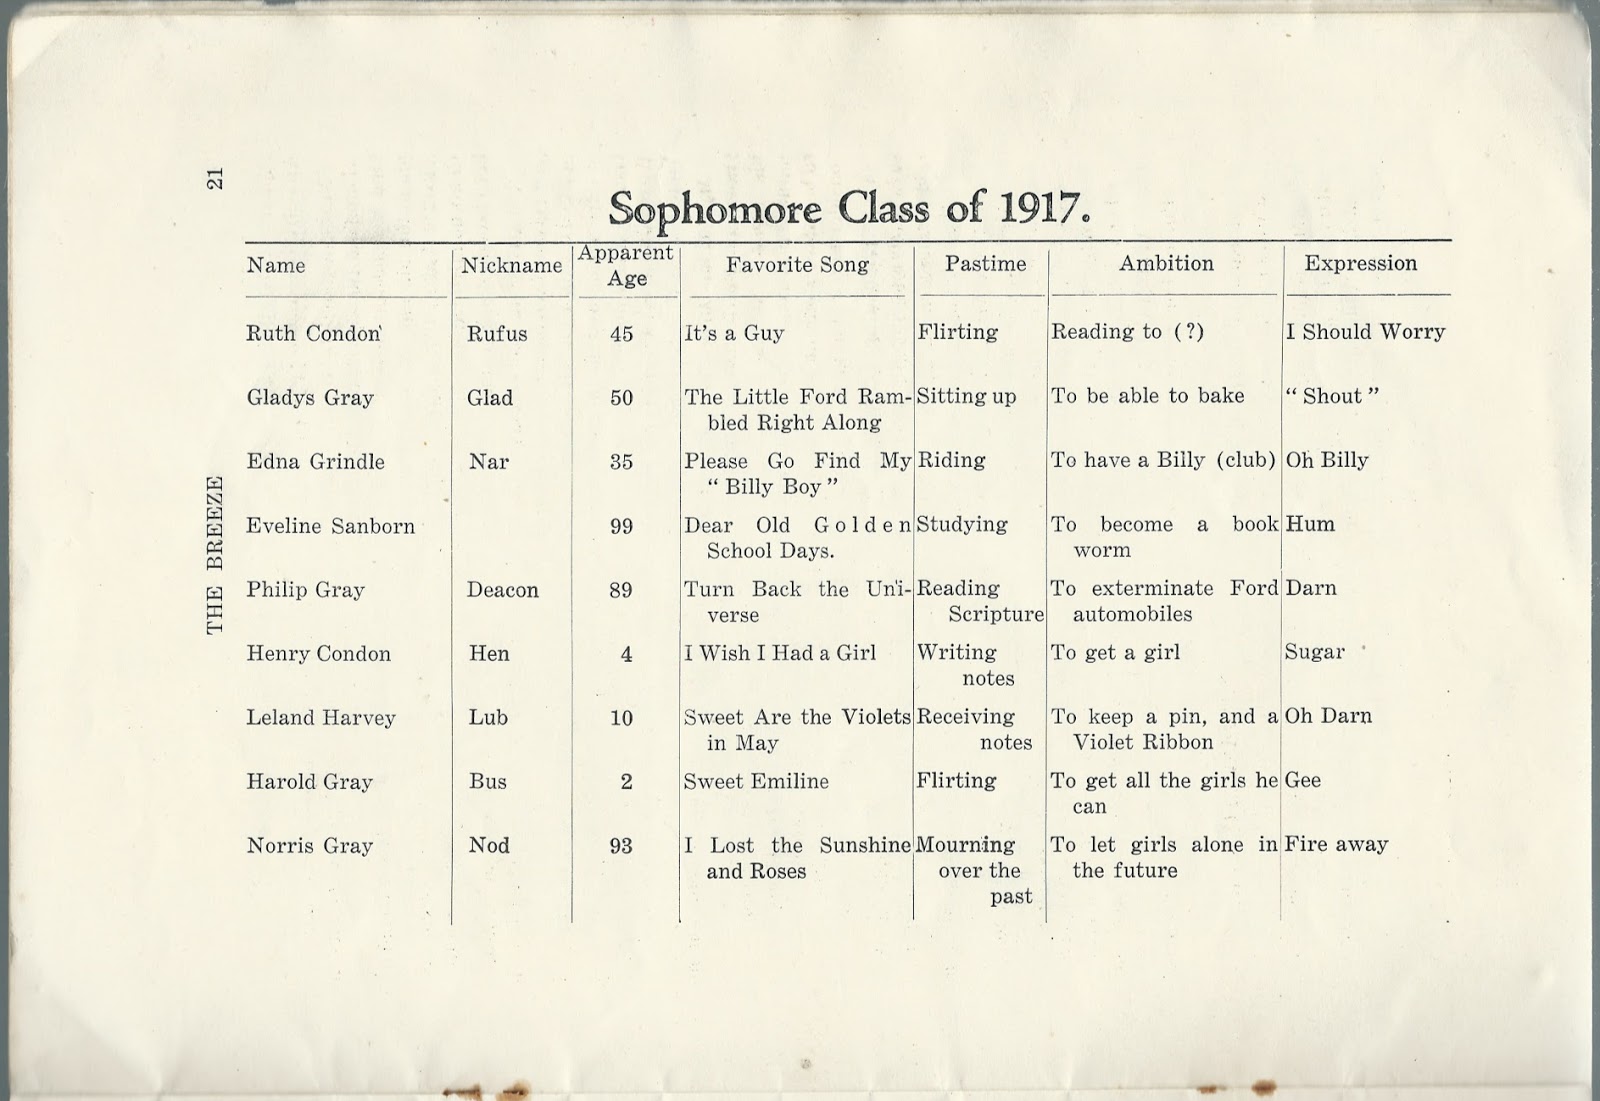 21
THE BREEZE
Sophomore Class of 1917.
Name Nickname Apparent Age Favorite Song Pastime Ambition Expression
Ruth Condon Rufus 45 It's a Guy Flirting Reading to (?) I Should Worry
Gladys Gray Glad 50 The Little Ford Ram- Sitting up To be able to bake “ Shout ”
bled Right Along
Edna Grindle Nar 35 Please Go Find My Riding To have a Billy (club) Oh Billy
“ Billy Boy ”
Eveline Sanborn 99 Dear Old Golden Studying To become a book Hum
School Days. worm
Philip Gray Deacon 89 Turn Back the Uni- Reading To exterminate Ford Darn
verse Scripture automobiles
Henry Condon Hen 4 I Wish I Had a Girl Writing To get a girl Sugar
notes
Leland Harvey Lub 10 Sweet Are the Violets Receiving To keep a pin, and a Oh Darn
in May notes Violet Ribbon
Harold Gray Bus 2 Sweet Emiline Flirting To get all the girls he Gee
can
Norris Gray Nod 93 I Lost the Sunshine Mourning To let girls alone in Fire away
and Roses over the the future
past